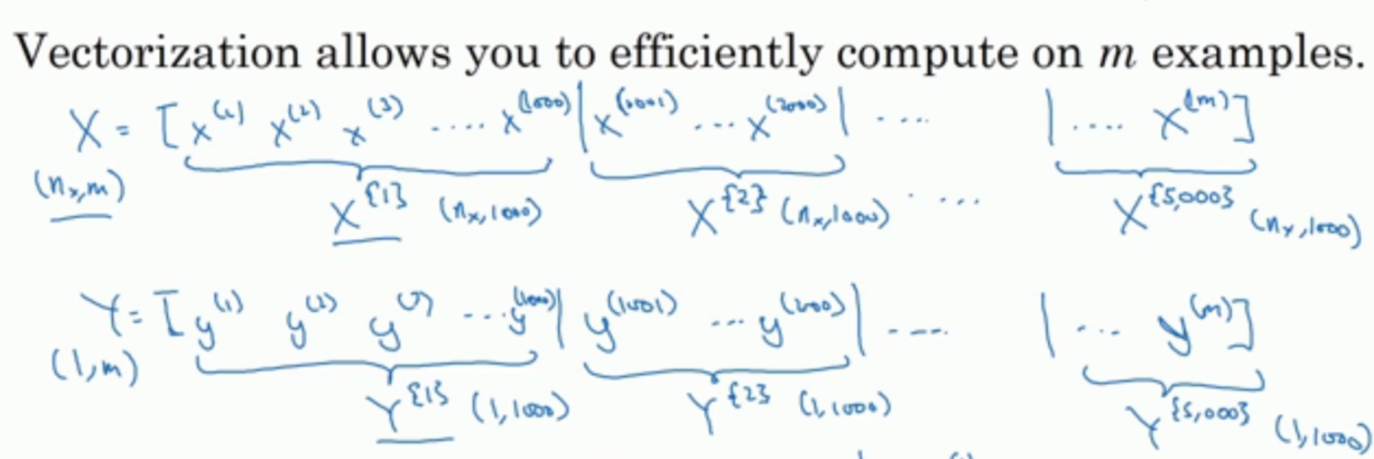 Vectorization allows you to efficiently compute on m examples.
X = [x^(1) x^(2) x^(3) .... x^(1000) | x^(1001) ... x^(2000) | .... | .... x^(m)]
(n_x, m)
X^{1} (n_x, 1000) X^{2} (n_x, 1000) .... X^{5,000} (n_x, 1000)
Y = [y^(1) y^(2) y^(3) ... y^(1000) | y^(1001) ... y^(2000) | .... | ... y^(m)]
(1, m)
Y^{1} (1, 1000) Y^{2} (1, 1000) Y^{5,000} (1, 1000)